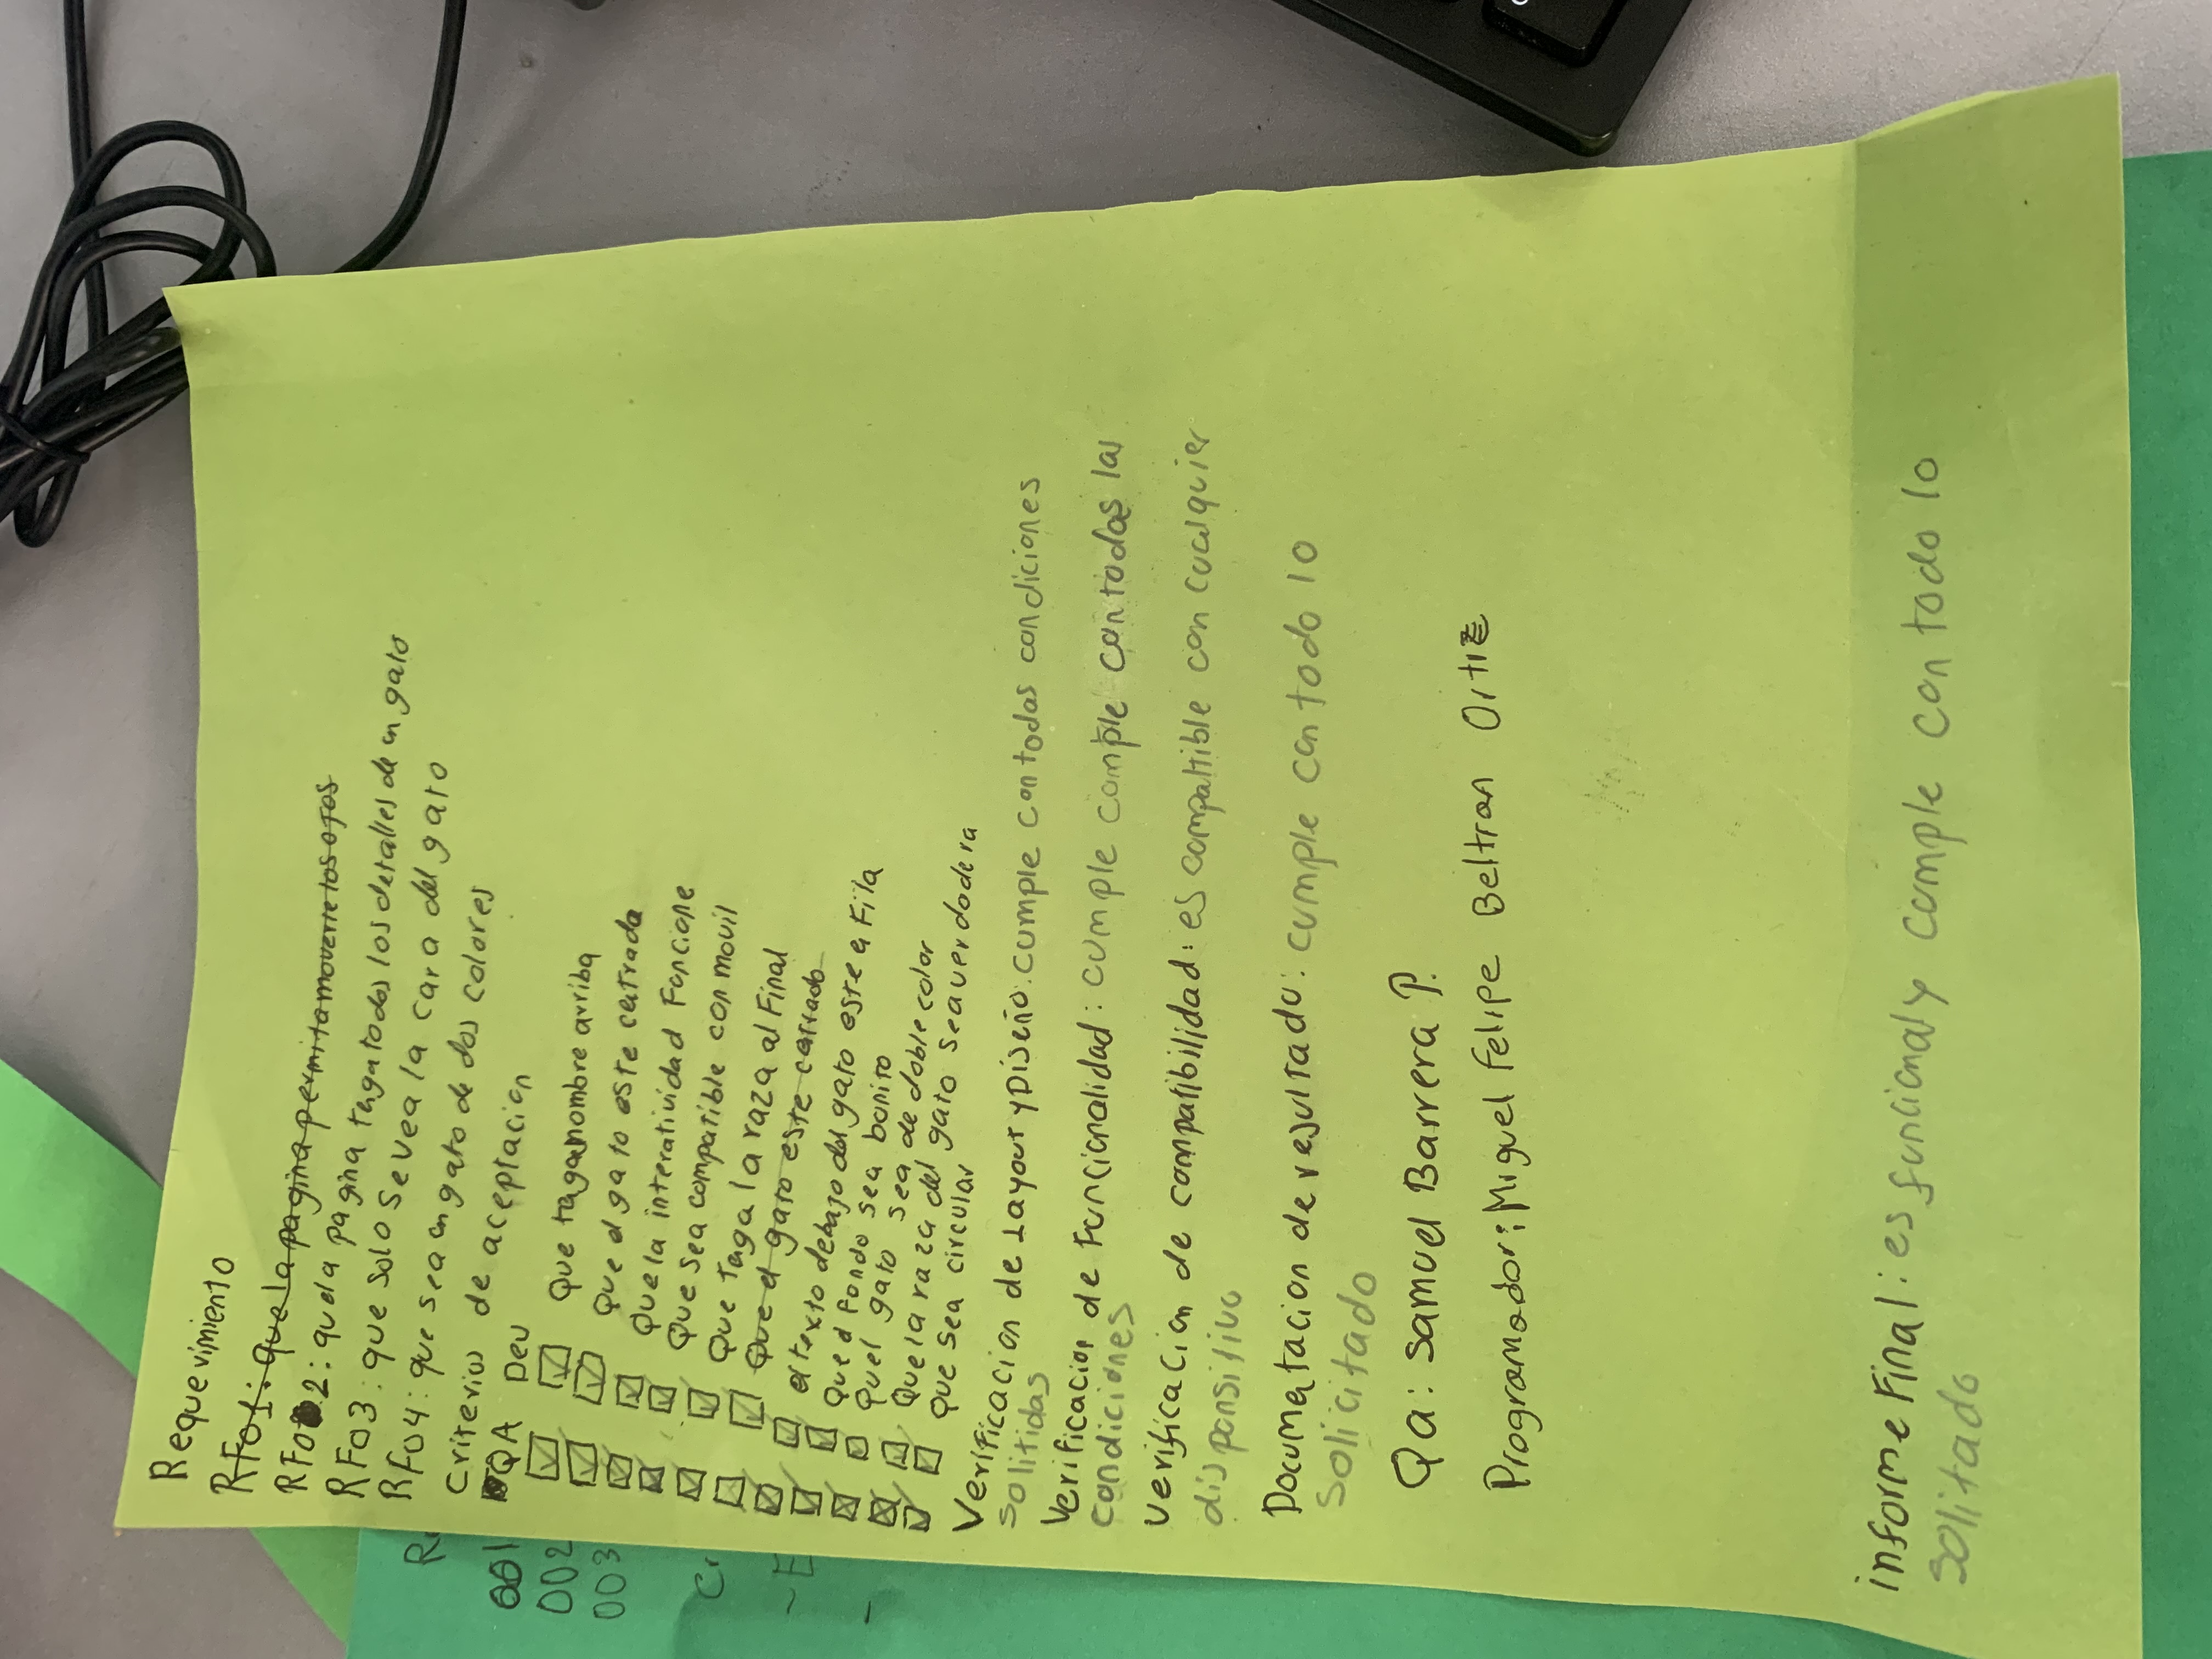 Requerimiento
RF01: que la pagina permita moverle los ojos
RF02: que la pagina tega todos los detalles de un gato
RF03: que solo se vea la cara del gato
RF04: que sea un gato de dos colores
criterios de aceptacion
QA Dev
Que tega nombre arriba
Que el gato este cetrado
Que la interatividad Funcione
Que sea compatible con movil
Que tega la raza al Final
Que el gato este cetrado
el texto debajo del gato este e Fila
Que el Fondo sea bonito
Quel gato sea de doble color
Que la raza del gato sea verdadera
Que sea circular
Verificacion de Layout y Diseño: cumple con todas condiciones
solitidas
Verificacion de Funcionalidad: cumple comple con todas las
condiciones
Verificacion de compatibilidad: es compattible con cualquier
disponsitivo
Documetacion de resultado: cumple con todo lo
Solicitado
Qa: Samuel Barrera P.
Programador: Miguel Felipe Beltran Ortiz
informe Final: es funcional y cumple con todo lo
solitado
Re
001
002
003
Cr
-E
-